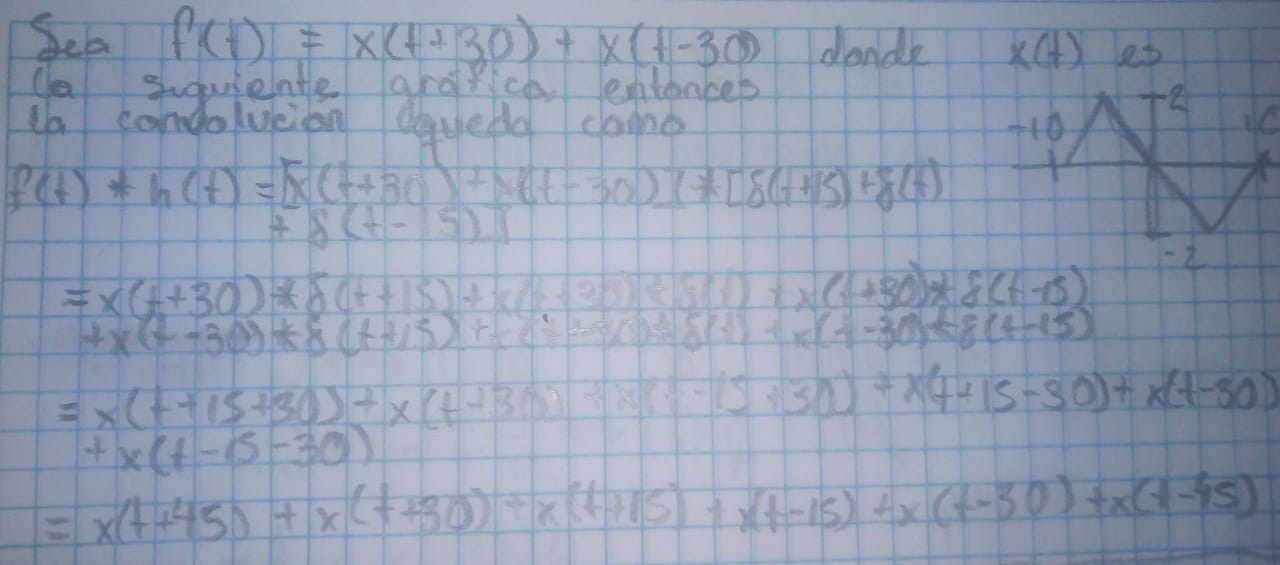 Sea f(t) = x(t+30) + x(t-30) donde x(t) es
la siguiente gráfica entonces
la convolucion queda como
2
-10
10
-2
f(t) * h(t) = [x(t+30) + x(t-30)] * [δ(t+15) + δ(t)
+ δ(t-15)]
= x(t+30) * δ(t+15) + x(t+30) * δ(t) + x(t+30) * δ(t-15)
+ x(t-30) * δ(t+15) + x(t-30) * δ(t) + x(t-30) * δ(t-15)
= x(t+15+30) + x(t+30) + x(t-15+30) + x(t+15-30) + x(t-30)
+ x(t-15-30)
= x(t+45) + x(t+30) + x(t+15) + x(t-15) + x(t-30) + x(t-45)